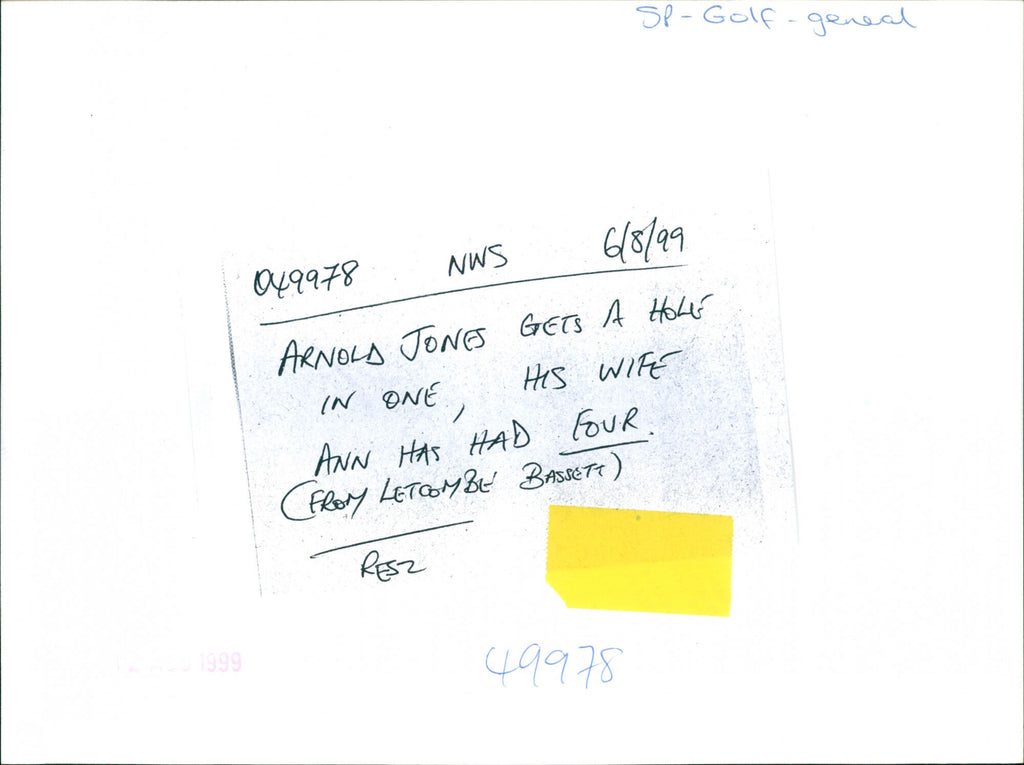 SP - Golf - general
049978 NWS 6/8/99
ARNOLD JONES GETS A HOLE
IN ONE, HIS WIFE
ANN HAS HAD FOUR.
(FROM LETCOMBE BASSETT)
RESZ
1999
49978